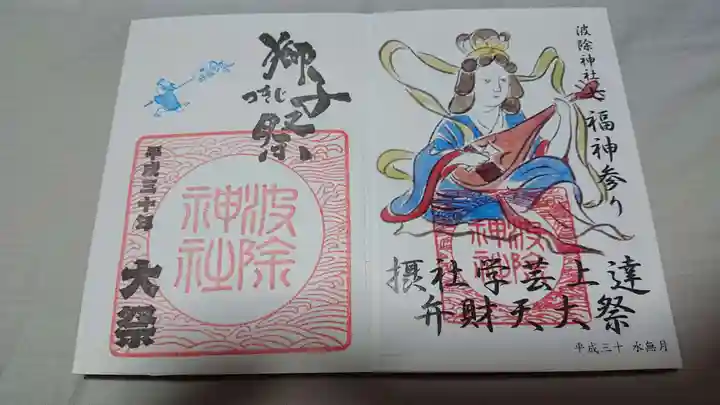 波除神社七福神参り
摂社学芸上達
弁財天大祭
平成三十 水無月
波除
神社
つきじ
獅子祭
平成三十年 大祭
波除
神社